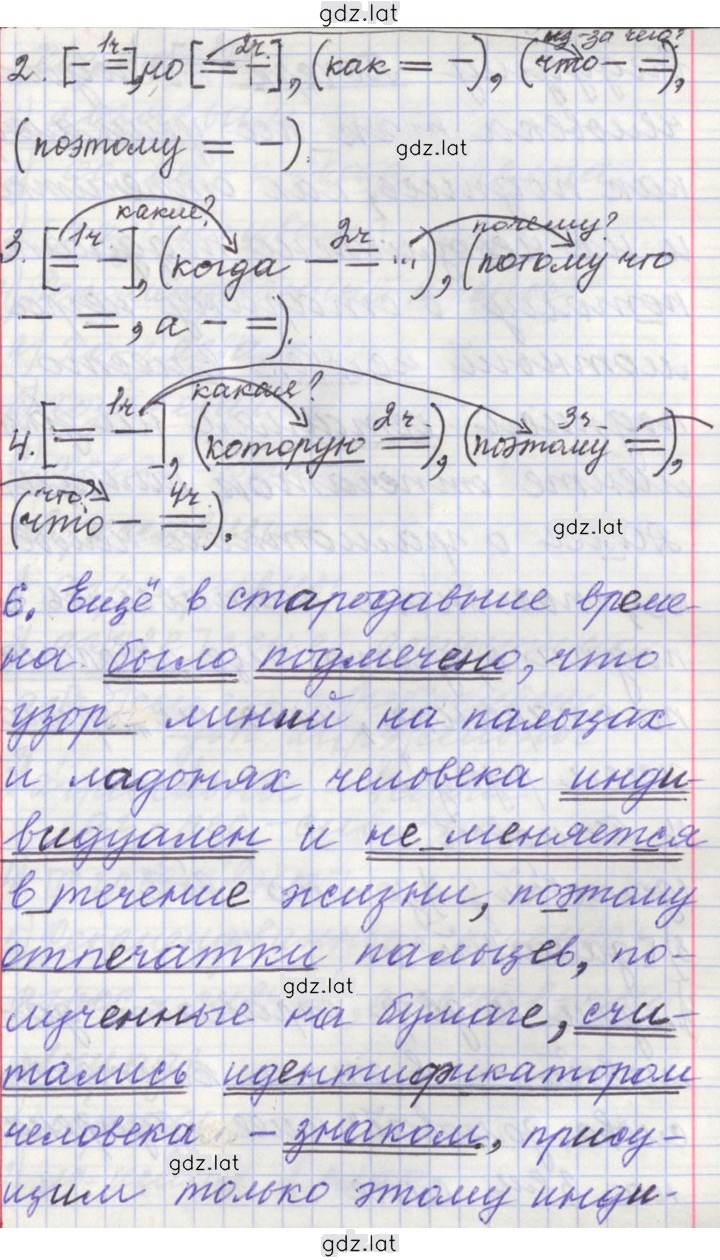 gdz.lat
из-за чего?
1ч. 2ч.
2. [– =], но [= –], (как = –), (что – =),
(поэтому = –).
gdz.lat
какие? почему?
1ч. 2ч
3. [= –], (когда – = ...), (потому что
– =, а – =).
какая?
1ч. 2ч. 3ч.
4. [= –], (которую =), (поэтому =),
что? 4ч.
(что – =).
gdz.lat
6. Ещё в стародавние време-
на было подмечено, что
узор линий на пальцах
и ладонях человека инди-
видуален и не меняется
в течение жизни, поэтому
отпечатки пальцев, по-
gdz.lat
лученные на бумаге, счи-
тались идентификатором
человека – знаком, прису-
gdz.lat
щим только этому инди-
gdz.lat